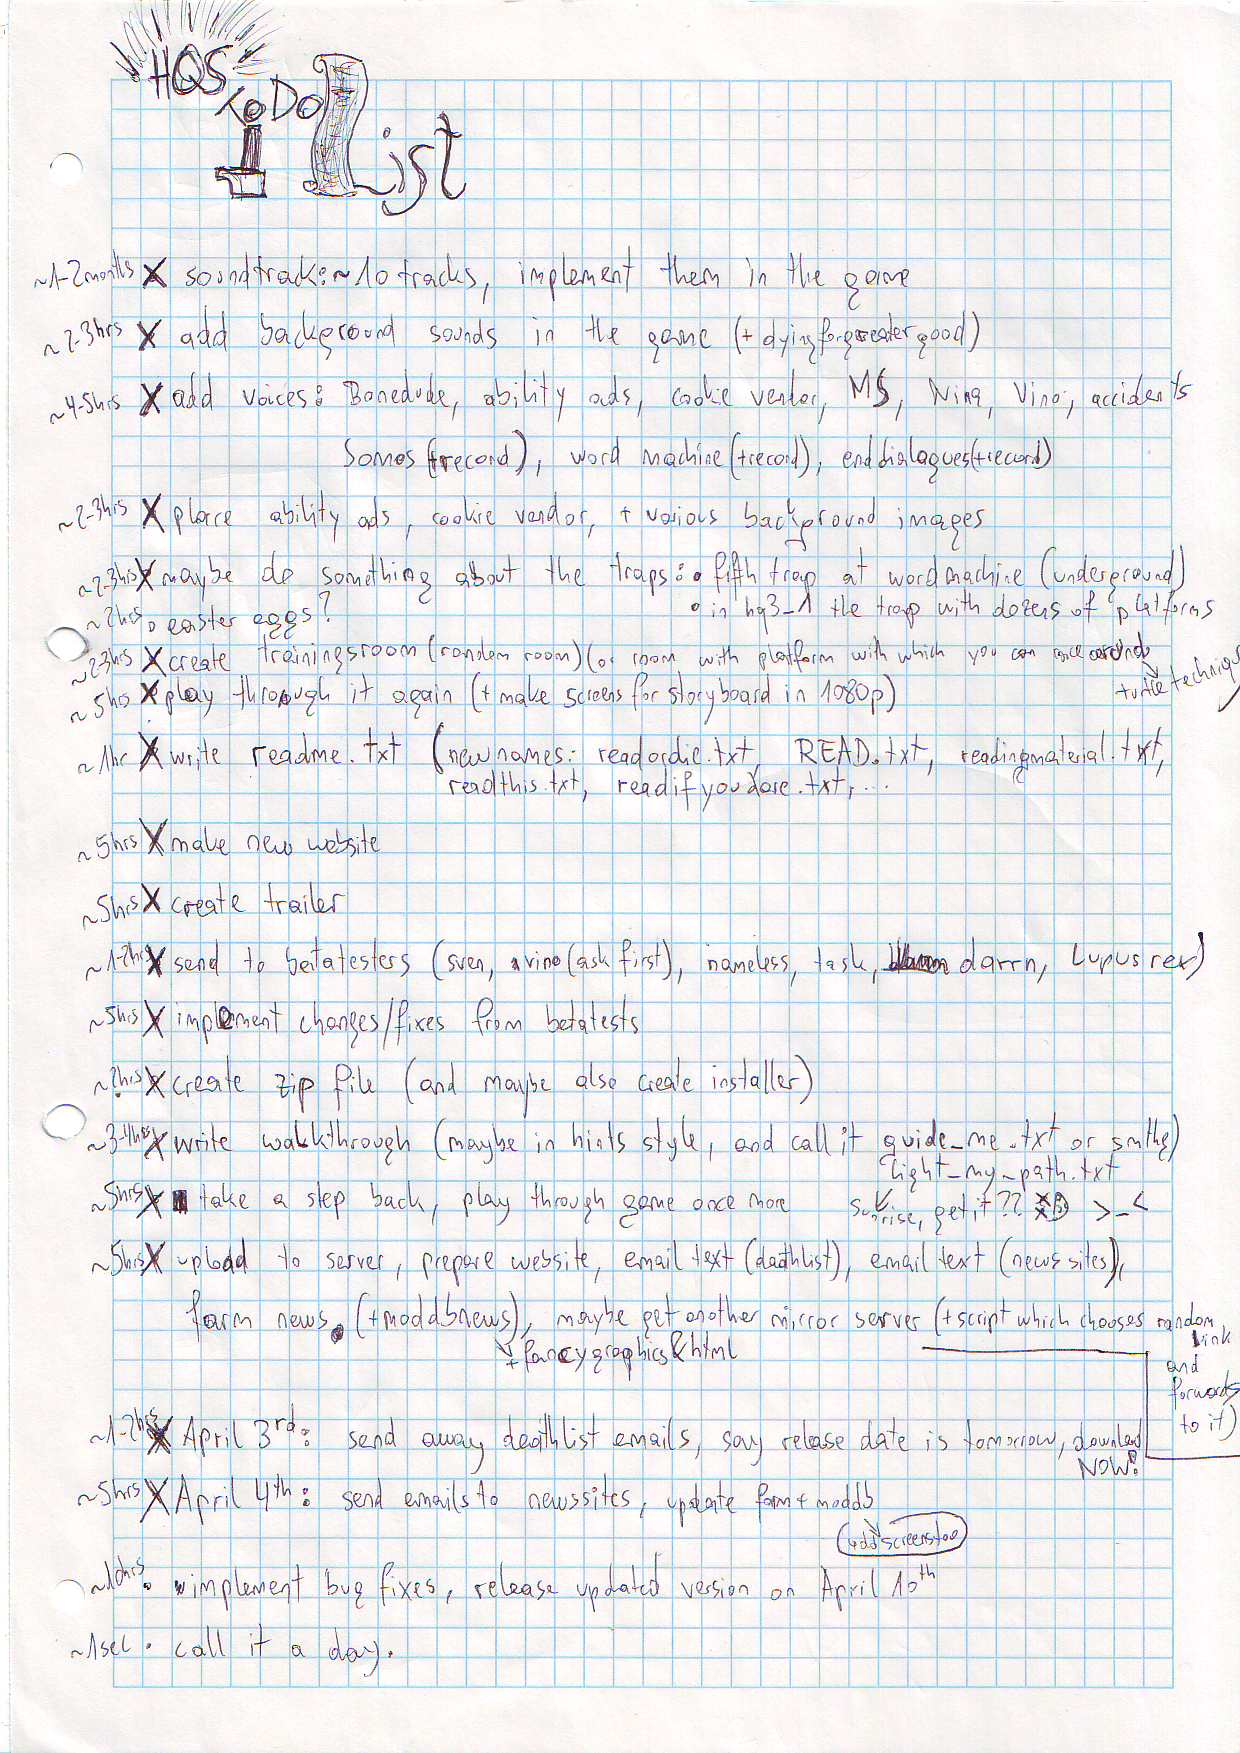 HQS
ToDo
List
~1-2months X soundtrack: ~10 tracks, implement them in the game
~2-3hrs X add background sounds in the game (+dyingforgreatergood)
~4-5hrs X add voices: Bonedude, ability ads, cookie vendor, MS, Nina, Vino, accidents
Somos (+record), word machine (+record), enddialogues (+record)
~2-3hrs X place ability ads, cookie vendor, + various background images
~2-3hrs X maybe do something about the traps: • fifth trap at wordmachine (underground)
• in hq3_1 the trap with dozens of platforms
~2hrs • easter eggs?
~2-3hrs X create trainingsroom (random room) (or room with platform with which you can race around)
turtle technique
~5hrs X play through it again (+ make screens for storyboard in 1080p)
~1hr X write readme.txt (new names: readordie.txt, READ.txt, readingmaterial.txt,
readthis.txt, readifyoudare.txt, ...
~5hrs X make new website
~5hrs X create trailer
~1-2hrs X send to betatesters (sven, vino (ask first), nameless, task, darrn, Lupus rex)
~5hrs X implement changes/fixes from betatests
~2hrs X create zip file (and maybe also create installer)
~3-4hrs X write walkthrough (maybe in hints style, and call it guide_me.txt or smthg)
light_my_path.txt
~5hrs X take a step back, play through game once more
sunrise, get it?? XD >_<
~5hrs X upload to server, prepare website, email text (deathlist), email text (news sites),
farm news. (+moddbnews), maybe get another mirror server (+script which chooses random
link
and
forwards
to it)
+ fancygraphics & html
~1-2hrs X April 3rd: send away deathlist emails, say release date is tomorrow, download
NOW!
~5hrs X April 4th: send emails to newssites, update farm + moddb
add screenshot
~10hrs • implement bug fixes, release updated version on April 10th
~1sec • call it a day.